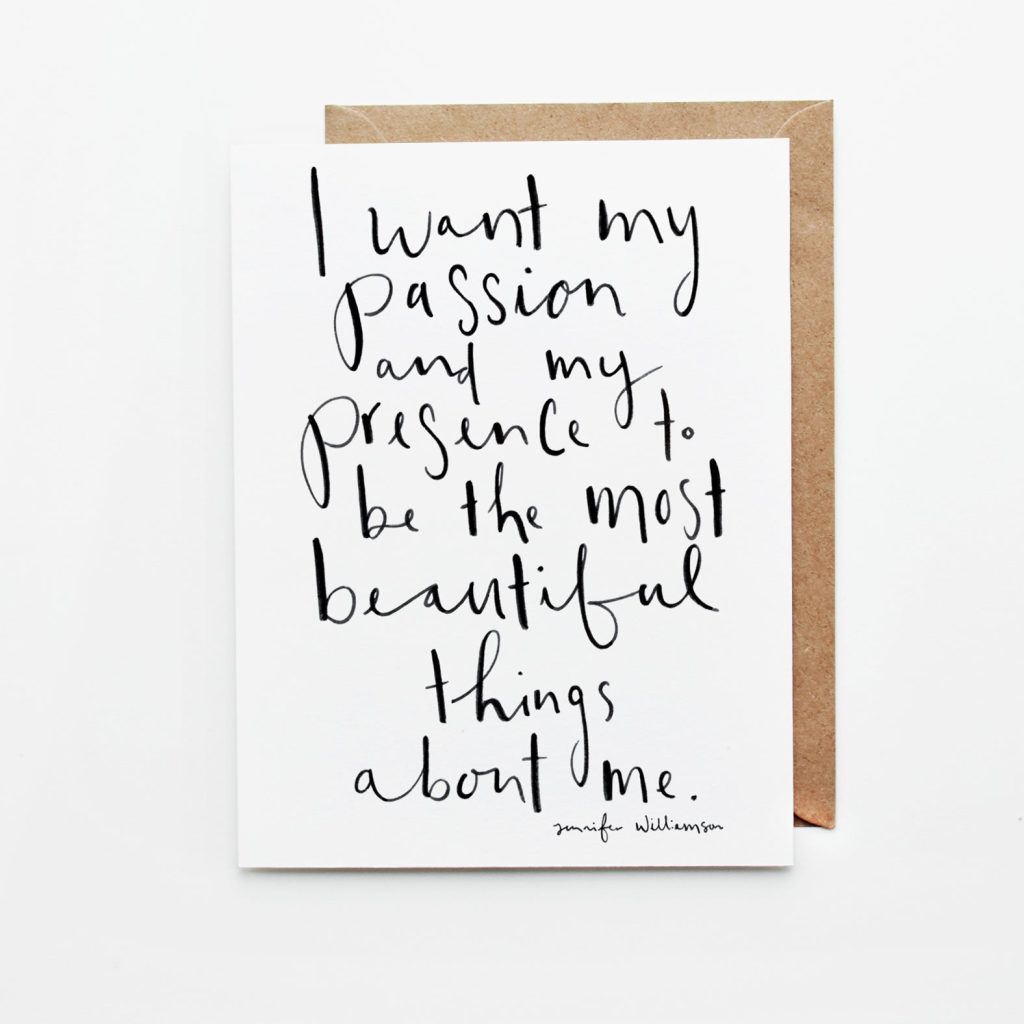 I want my
passion
and my
presence to
be the most
beautiful
things
about me.
Jennifer Williamson